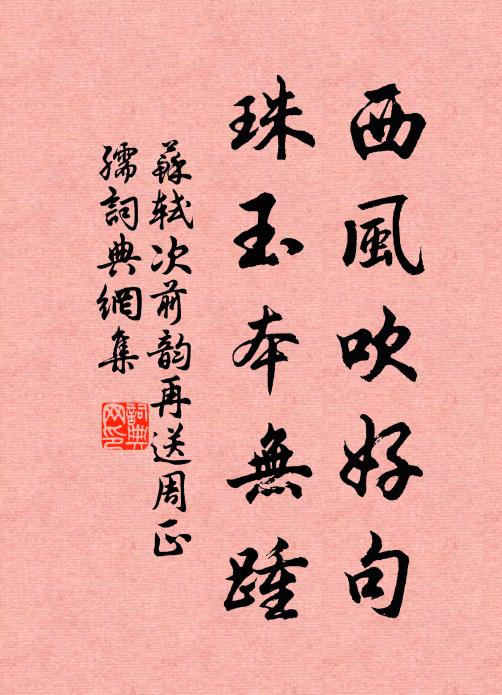 西風吹好句
珠玉本無踵
蘇軾次前韵再送周正
孺詞典網集
詞典
网印